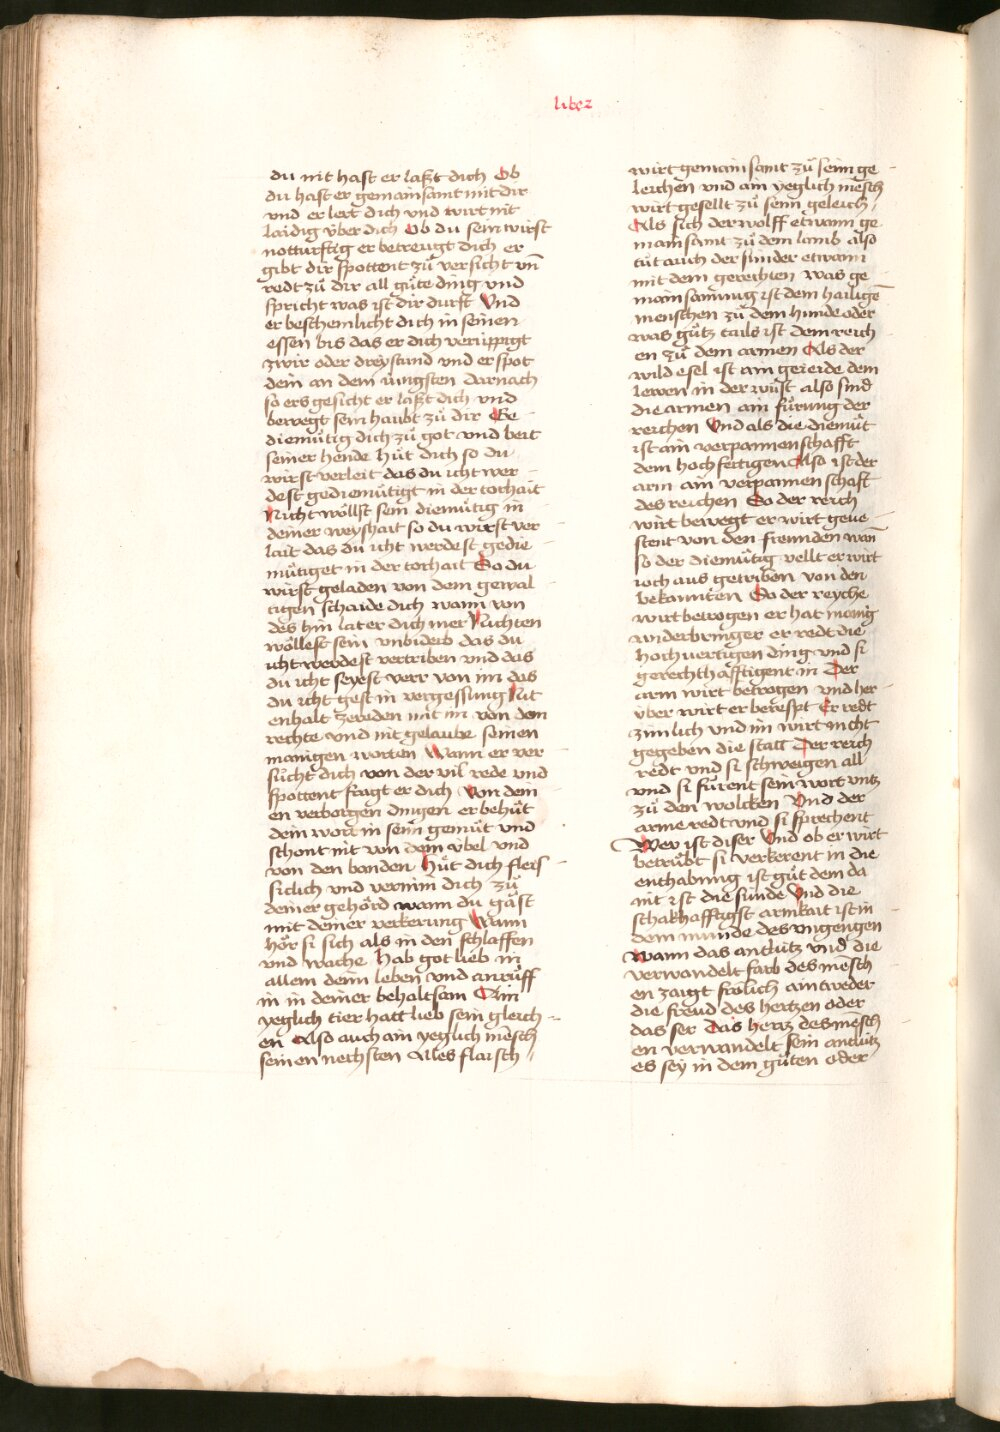 liber
du nit hast er laßt dich Ob
du hast er gemainsamt mit dir
und er lert dich und wirt nit
laidig über dich Ob du sein wirst
notturftig er betreugt dich er
gibt dir spottent zů versicht vn̄
redt zů dir all gůte ding und
spricht was ist dir durft Und
er beschemlicht dich in seinen
essen bis das er dich verüppigt
zwir oder dreystund und er spot
dein an dem iungsten darnach
so ers gesicht er laßt dich und
bewegt sein haubt zů dir Ge
diemůtig dich zů got und beit
seiner hende Hüt dich so du
wirst verleit das du icht wer
dest gediemůtigt in der torhait
Nicht wöllst sein diemůtig in
deiner weyshait so du wirst ver
lait das du icht werdest gedie
můtiget in der torhait So du
wirst geladen von dem gewal
tigen schaide dich wann von
des hin later dich mer Nichten
wöllest sein unbiderb das du
icht werdest vertriben und das
du icht seyest verr von im das
du icht gest in vergessung Nit
enhalt zereden mit im von dem
rechte und nit gelaube seinen
manigen worten Wann er ver
sůcht dich von der vil rede und
spottent fragt er dich Von dem
en verborgen dingen er behůt
dein wort in seim gemůt und
schont nit von dem übel und
von den banden Hüt dich fleis
siclich und vernim dich zů
deiner gehörd wann du gäst
mit deiner verkerung Wann
hör si sich als in den schlaffen
und wache hab got lieb in
allem deim leben und anrůff
in in deiner behaltsam Ain
yeglich tier hatt lieb sein gleich
en Also auch ain yeglich mēsch
seinen nechsten Alles flaisch
wirt gemainsamt zů seim ge
leichen und ain yeglich mēsch
wirt gesellt zů seim geleich
Als sich der wolff etwann ge
mainsamt zů dem lamb also
tůt auch der sünder etwann
mit dem gerechten was ge
mainsamug ist dem hailigē
menschen zů dem hunde oder
was gůtz tails ist dem reich
en zů dem armen Als der
wild esel ist ain geieide dem
lewen in der wůst also sind
die armen ain fůrung der
reichen Und als die diemůt
ist ain verpannenschafft
dem hochfertigen Also ist der
arm ain verpannenschaft
des reichen So der reich
wirt bewegt er wirt geue
stent von den freunden wan̄
so der diemůtig vellt er wirt
ioch aus getriben von den
bekannten So der reyche
wirt betrogen er hat manig
widerbringer er redt die
hochvertigen ding und si
gerechthafftigent in Der
arm wirt betrogen und her
über wirt er berespt Er redt
zimlich und im wirt nicht
gegeben die statt Der reich
redt und si schweigen all
und si fůrent sein wort untz
zů den wolcken Und der
arme redt und si sprechent
Wer ist diser Und ob er wirt
betrůbt si verkerent in die
enthabung ist gůt dem da
nit ist die sünde Und die
schalkhafftigst armkait ist in
dem munde des ungengen
Wann das antlütz und die
verwandelt farb des mēsch
en zaigt frölich aintweder
die freud des hertzen oder
das ser Das hertz des mēsch
en verwandelt sein antlütz
es sey in dem gůten oder